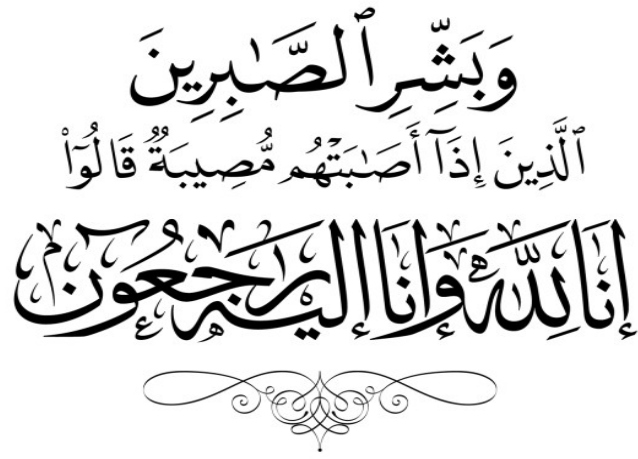 وَبَشِّرِ ٱلصَّـٰبِرِينَ
ٱلَّذِينَ إِذَآ أَصَـٰبَتْهُم مُّصِيبَةٌ قَالُوٓا۟
إنا لله وإنا إليه راجعون